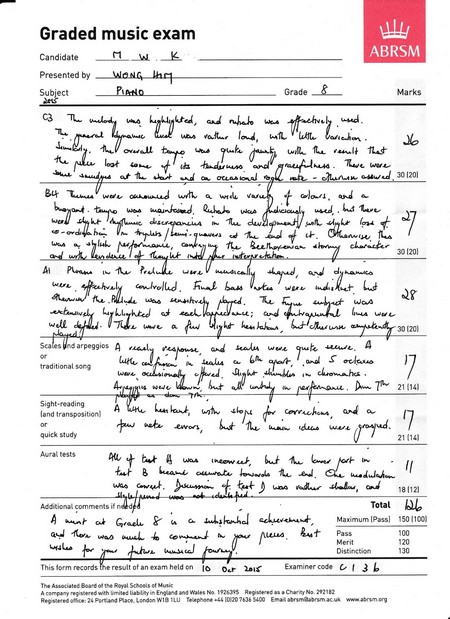 Graded music exam
ABRSM
Candidate M W K
Presented by WONG HIM
Subject PIANO Grade 8 Marks
2015
C3 The melody was highlighted, and rubato was effectively used.
The general dynamic level was rather loud, with little variation.
Similarly, the overall tempo was quite jaunty, with the result that
the piece lost some of its tenderness and gracefulness. There were
some smudges at the start and an occasional note - otherwise assured.
26
30 (20)
B4 Themes were announced with a wide variety of colours, and a
buoyant tempo was maintained. Rubato was judiciously used, but there
were slight rhythmic discrepancies in the development, with slight loss of
co-ordination in triplets/semi-quavers at the end of it. Otherwise, this
was a stylish performance, conveying the Beethovenian stormy character
and with evidence of thought into your interpretation.
27
30 (20)
A1 Phrases in the Prelude were musically shaped, and dynamics
were effectively controlled. Final bass notes were indistinct, but
otherwise the Prelude was sensitively played. The Fugue subject was
extensively highlighted at each appearance; and contrapuntal lines were
well defined. There were a few slight hesitations, but otherwise competently
played.
28
30 (20)
Scales and arpeggios
or
traditional song
A ready response, and scales were quite secure. A
little confusion in scales a 6th apart, and 5 octaves
were occasionally offered. Slight stumbles in chromatics.
Arpeggios were known, but all in performance. Dom 7th
played as dim 7th.
17
21 (14)
Sight-reading
(and transposition)
or
quick study
A little hesitant, with stops for corrections, and a
few note errors, but the main ideas were grasped.
17
21 (14)
Aural tests
All of test A was incorrect, but the lower part in
test B became accurate towards the end. One modulation
was correct. Discussion of test D was rather shallow, and
style/period was not identified.
11
18 (12)
Additional comments if needed
Total 126
A merit at Grade 8 is a substantial achievement,
and there was much to commend in your pieces. Best
wishes for your future musical journey.
Maximum (Pass) 150 (100)
Pass 100
Merit 120
Distinction 130
This form records the result of an exam held on 10 Oct 2015 Examiner code C136
The Associated Board of the Royal Schools of Music
A company registered with limited liability in England and Wales No. 1926395 Registered as a Charity No. 292182
Registered office: 24 Portland Place, London W1B 1LU Telephone +44 (0)20 7636 5400 Email abrsm@abrsm.ac.uk www.abrsm.org